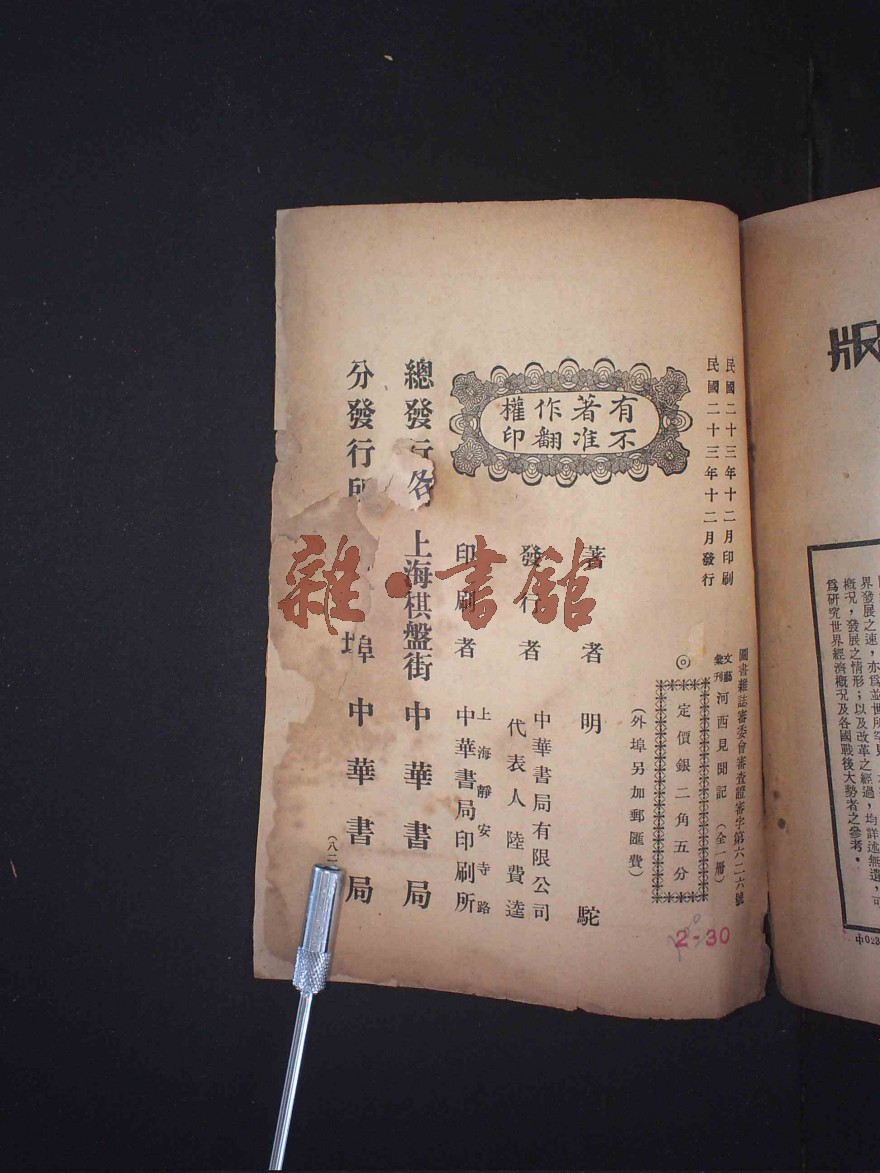 民國二十三年十二月印刷
民國二十三年十二月發行
圖書雜誌審委會審查證審字第六二六號
文藝彙刊 河西見聞記 (全一冊)
◎定價銀二角五分
(外埠另加郵匯費)
有著作權
不准翻印
著者 明駝
發行者 中華書局有限公司
代表人陸費逵
印刷者 上海靜安寺路
中華書局印刷所
總發行 上海棋盤街 中華書局
分發行所 各埠 中華書局
(八二
2-30
雜·書館
版
界發展之速,亦為並世所罕見
概況,發展之情形;以及改革之經過,均詳述無遺,可
為研究世界經濟概況及各國戰後大勢者之參考。
中023